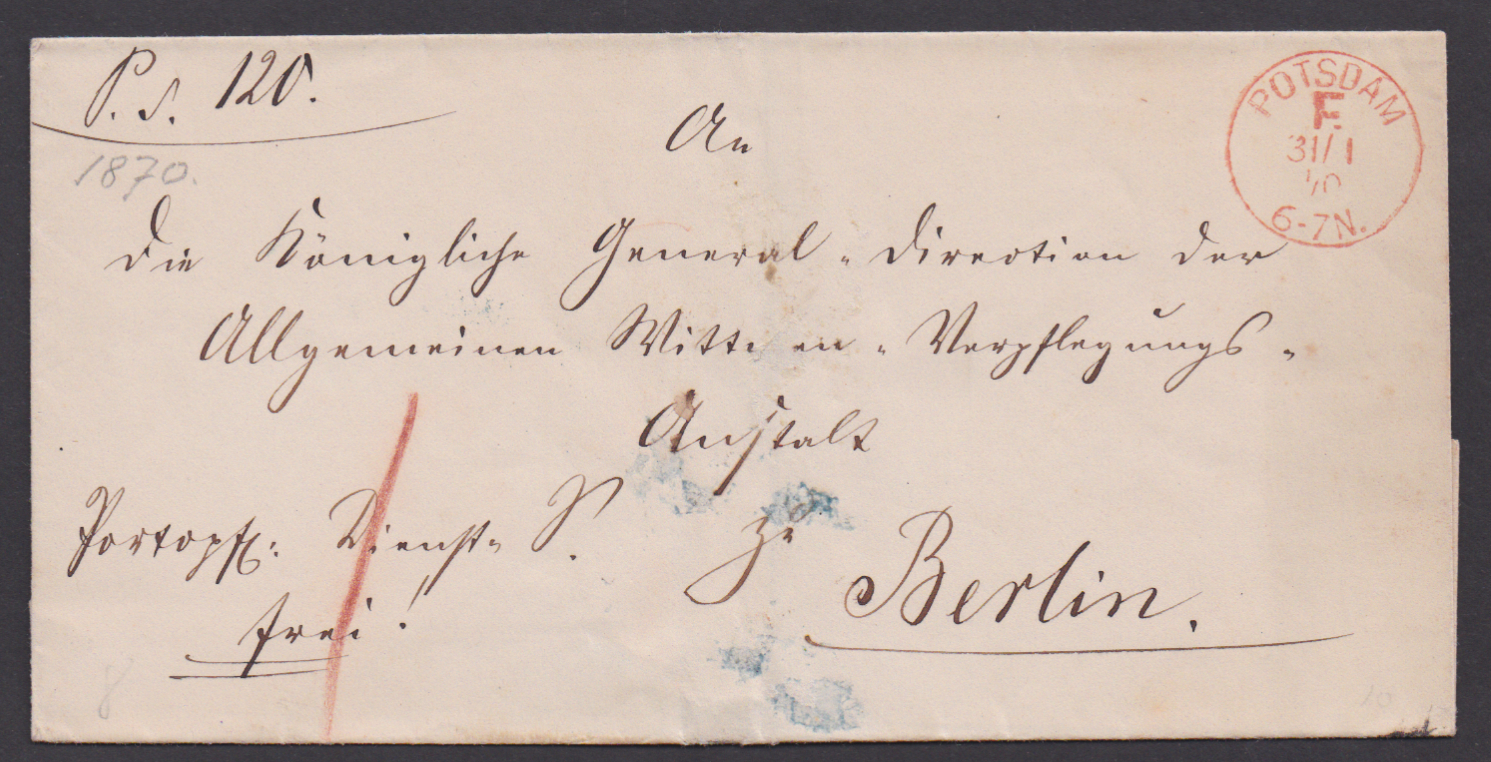 P. S. 120.
1870.
POTSDAM
F.
31/1
70
6-7N.
An
die Königliche General-Direction der
Allgemeinen Wittwen-Verpflegungs-
Anstalt
zu
Berlin.
Portopfl: Dienst-S.
frei!
8
10